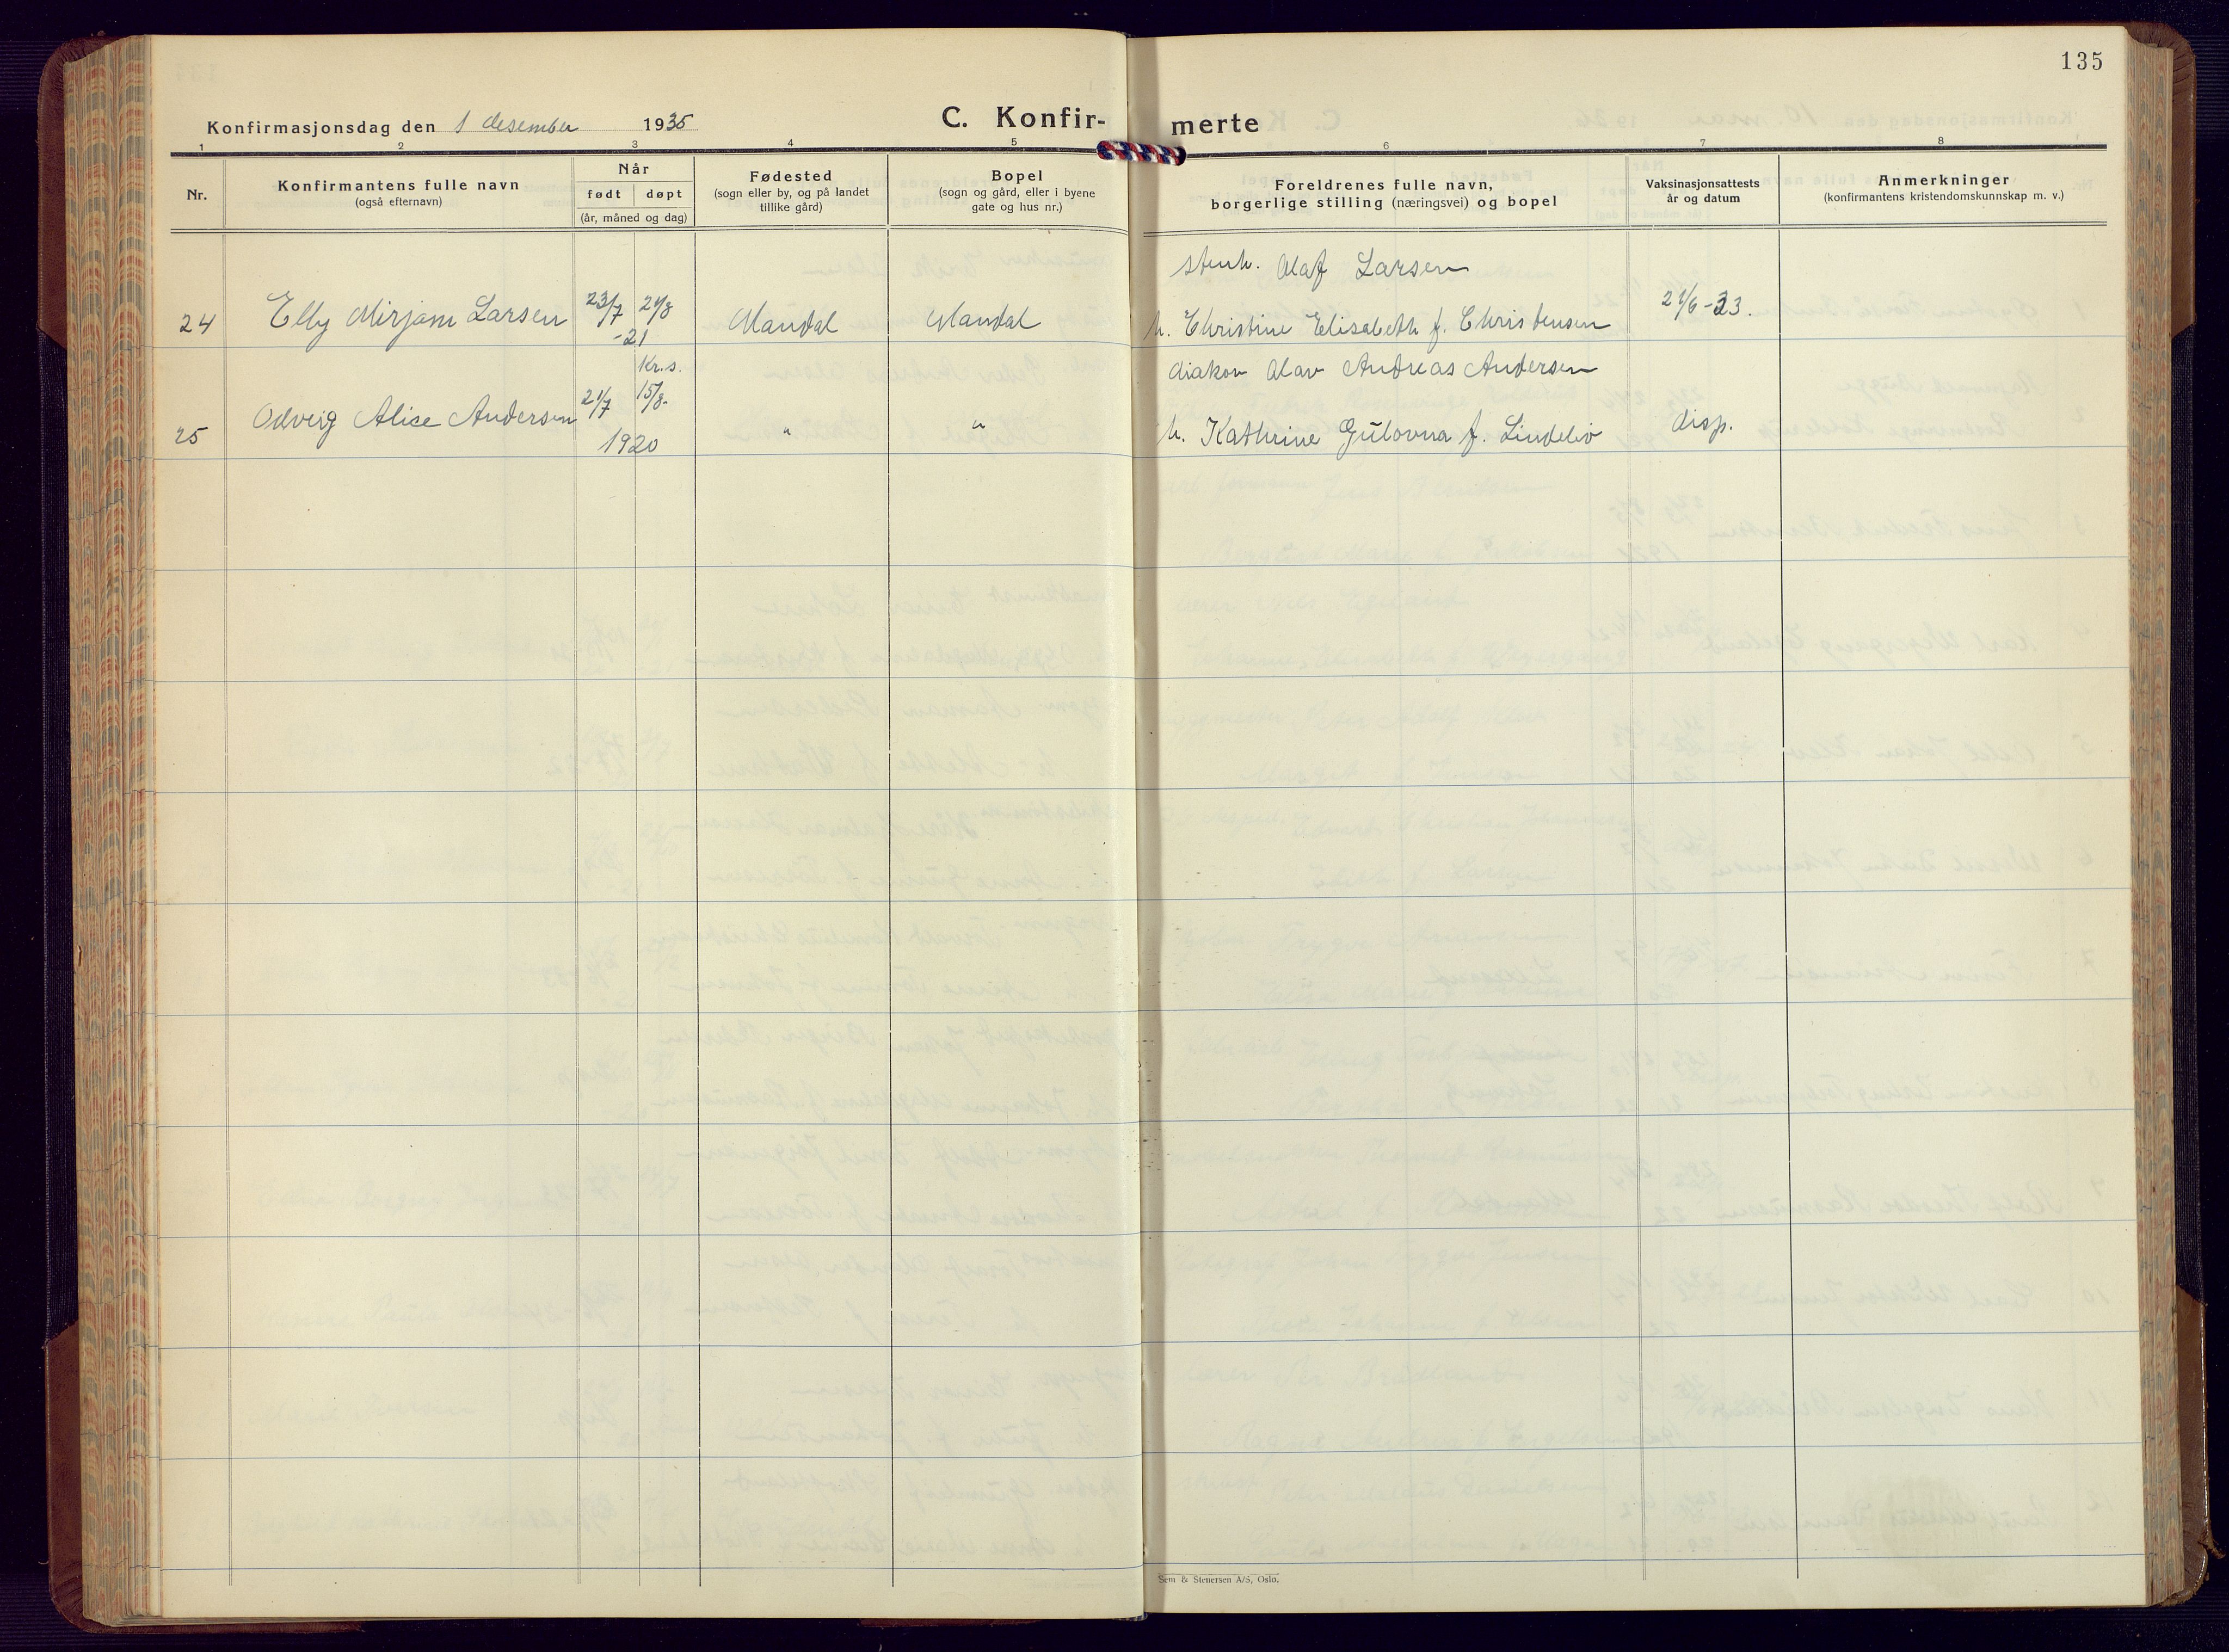 135
Konfirmasjonsdag den 1 desember 1935
C. Konfir- merte
1 2 3 4 5 6 7 8
Nr.
Konfirmantens fulle navn
(også efternavn)
Når
født døpt
(år, måned og dag)
Fødested
(sogn eller by, og på landet
tillike gård)
Bopel
(sogn og gård, eller i byene
gate og hus nr.)
Foreldrenes fulle navn,
borgerlige stilling (næringsvei) og bopel
Vaksinasjonsattests
år og datum
Anmerkninger
(konfirmantens kristendomskunnskap m. v.)
Olaf Larsen
24 Elly Mirjam Larsen 23/7 21/8 Mandal Mandal h. Christine Elisabeth f. Christensen 21/6-33.
-21
Kr.s.
diakon Olav Andreas Andersen
25 Odveig Alice Andersen 21/7 15/8- " " h. Kathrine Gulovna f. Lindeliv disp.
1920
Sem & Stenersen A/S, Oslo.